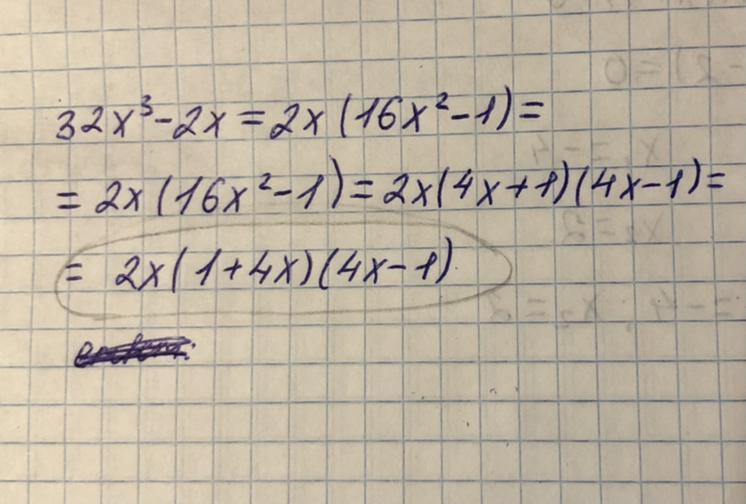 32x³-2x=2x(16x²-1)=
=2x(16x²-1)=2x(4x+1)(4x-1)=
= 2x(1+4x)(4x-1)